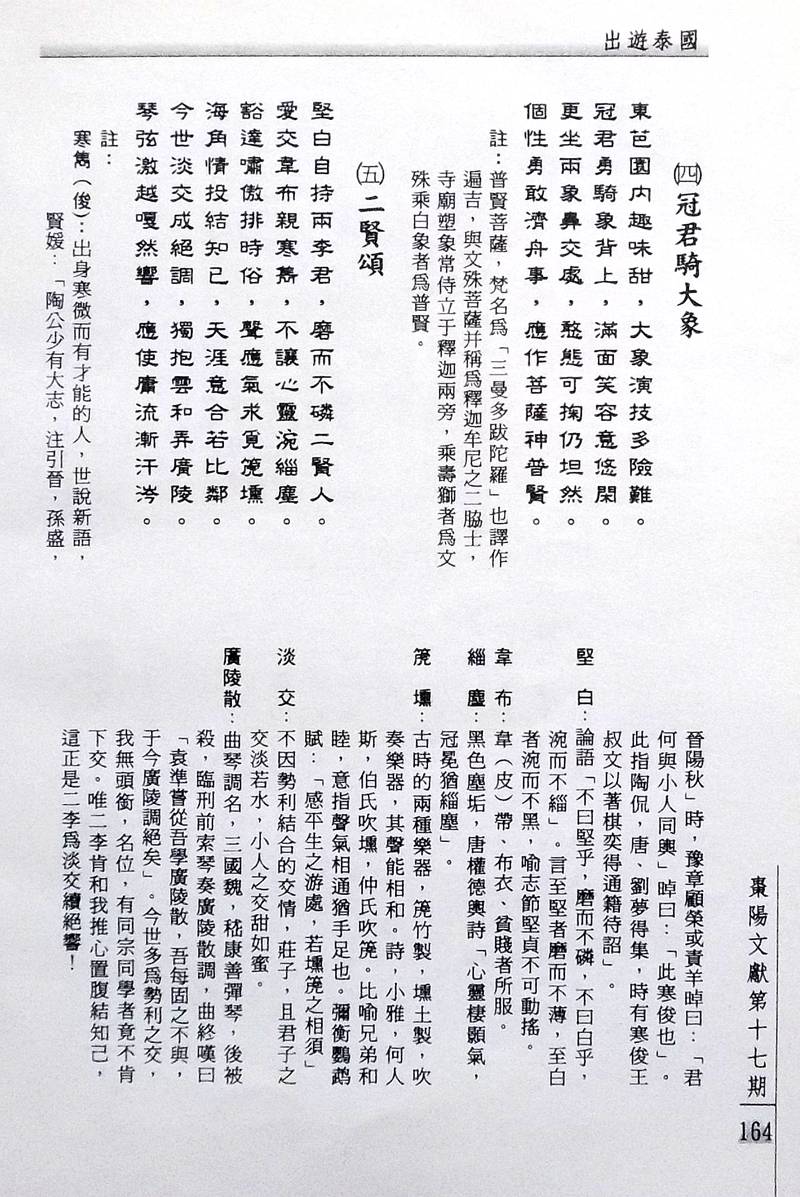 出遊泰國
㈣冠君騎大象
東芭園內趣味甜，大象演技多險難。
冠君勇騎象背上，滿面笑容意悠閑。
更坐兩象鼻交處，憨態可掬仍坦然。
個性勇敢濟舟事，應作菩薩神普賢。
註：普賢菩薩，梵名爲「三曼多跋陀羅」也譯作
遍吉，與文殊菩薩并稱爲釋迦牟尼之二脇士，
寺廟塑象常侍立于釋迦兩旁，乘壽獅者爲文
殊乘白象者爲普賢。
㈤二賢頌
堅白自持兩李君，磨而不磷二賢人。
愛交韋布親寒雋，不讓心靈涴緇塵。
豁達嘯傲排時俗，聲應氣求覓箎壎。
海角情投結知己，天涯意合若比鄰。
今世淡交成絕調，獨抱雲和弄廣陵。
琴弦激越嘎然響，應使庸流漸汗涔。
註：
寒雋（俊）：出身寒微而有才能的人，世說新語，
賢媛：「陶公少有大志，注引晉，孫盛，
晉陽秋」時，豫章顧榮或責羊晫曰：「君
何與小人同輿」晫曰：「此寒俊也」。
此指陶侃，唐、劉夢得集，時有寒俊王
叔文以著棋奕得通籍待詔」。
堅白：論語「不曰堅乎，磨而不磷，不曰白乎，
涴而不緇」。言至堅者磨而不薄，至白
者涴而不黑，喻志節堅貞不可動搖。
韋布：韋（皮）帶、布衣、貧賤者所服。
緇塵：黑色塵垢，唐權德輿詩「心靈棲顥氣，
冠冕猶緇塵」。
箎壎：古時的兩種樂器，箎竹製，壎土製，吹
奏樂器，其聲能相和。詩，小雅，何人
斯，伯氏吹壎，仲氏吹箎。比喻兄弟和
睦，意指聲氣相通猶手足也。彌衡鸚鵡
賦：「感平生之游處，若壎箎之相須」
淡交：不因勢利結合的交情，莊子，且君子之
交淡若水，小人之交甜如蜜。
廣陵散：曲琴調名，三國魏，嵇康善彈琴，後被
殺，臨刑前索琴奏廣陵散調，曲終嘆曰
「袁準嘗從吾學廣陵散，吾每固之不與，
于今廣陵調絕矣」。今世多爲勢利之交，
我無頭銜，名位，有同宗同學者竟不肯
下交。唯二李肯和我推心置腹結知己，
這正是二李爲淡交續絕響！
棗陽文獻第十七期
164